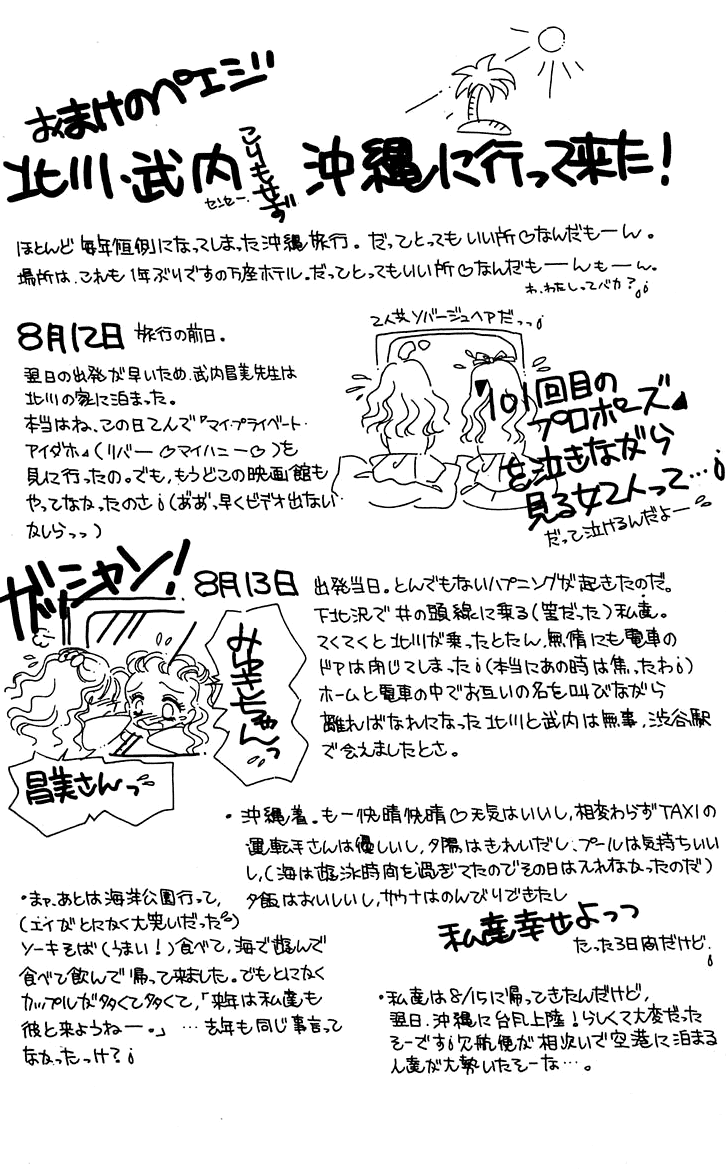 おまけのペエジ
北川・武内センセー こりもせず 沖縄に行って来た!
ほとんど毎年恒例になってしまった沖縄旅行。だってとってもいい所♡なんだもーん。
場所は、これも1年ぶりですの万座ホテル。だってとってもいい所♡なんだもーんもーん。
わ、わたしってバカ?。¡
8月12日 旅行の前日。
翌日の出発が早いため、武内昌美先生は
北川の家に泊まった。
本当はね、この日2人で『マイ・プライベート・
アイダホ』(リバー♡マイハニー♡)を
見に行ったの。でも、もうどこの映画館も
やってなかったのさ¡(ああっ、早くビデオ出ない
かしらっっ)
2人共ソバージュヘアだっっ¡
『101回目の
プロポーズ』
を泣きながら
見る女2人って…¡
だって泣けるんだよー
ガッシャン!
みゆきちゃんっ
昌美さんっ
8月13日
出発当日。とんでもないハプニングが起きたのだ。
下北沢で井の頭線に乗る(筈だった)私達。
てくてくと北川が乗ったとたん、無情にも電車の
ドアは閉じてしまった¡(本当にあの時は焦ったわ¡)
ホームと電車の中でお互いの名を叫びながら
離ればなれになった北川と武内は無事、渋谷駅
で会えましたとさ。
・沖縄着。もー快晴快晴♡天気はいいし、相変わらずTAXIの
運転手さんは優しいし、夕陽はきれいだし、プールは気持ちいい
し、(海は遊泳時間を過ぎてたのでその日は入れなかったのだ)
夕飯はおいしいし、サウナはのんびりできたし
私達幸せよっっ
たった3日間だけど。¡
・まァ、あとは海洋公園行って、
(エイがとにかく大笑いだった)
ソーキそば(うまい!)食べて、海で遊んで
食べて飲んで帰って来ました。でもとにかく
カップルが多くて多くて、「来年は私達も
彼と来ようねー。」…去年も同じ事言って
なかったっけ?¡
・私達は8/15に帰ってきたんだけど、
翌日、沖縄に台風上陸!らしくて大変だった
そーです¡欠航便が相次いで空港に泊まる
人達が大勢いたそーな…。